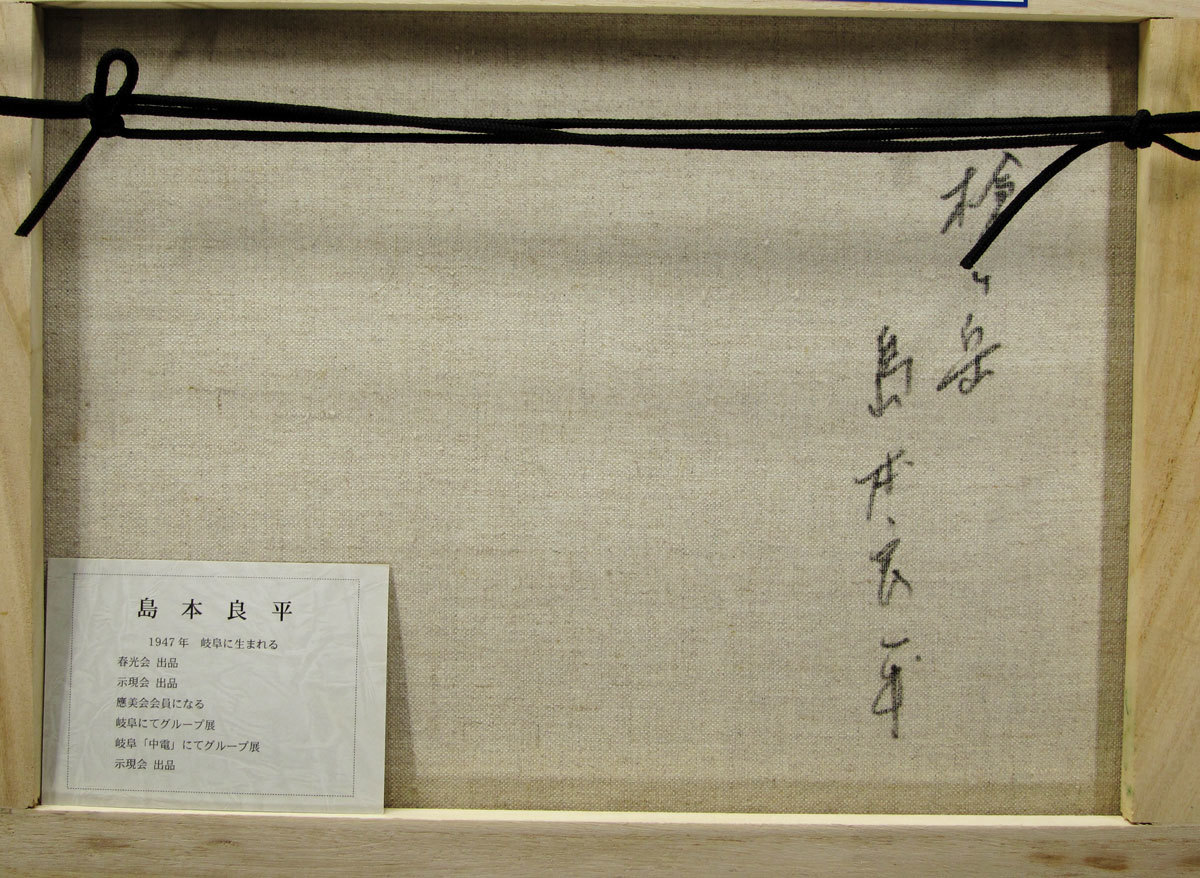 槍ヶ岳
島本良平
島本良平
1947年 岐阜に生まれる
春光会 出品
示現会 出品
應美会会員になる
岐阜にてグループ展
岐阜「中電」にてグループ展
示現会 出品